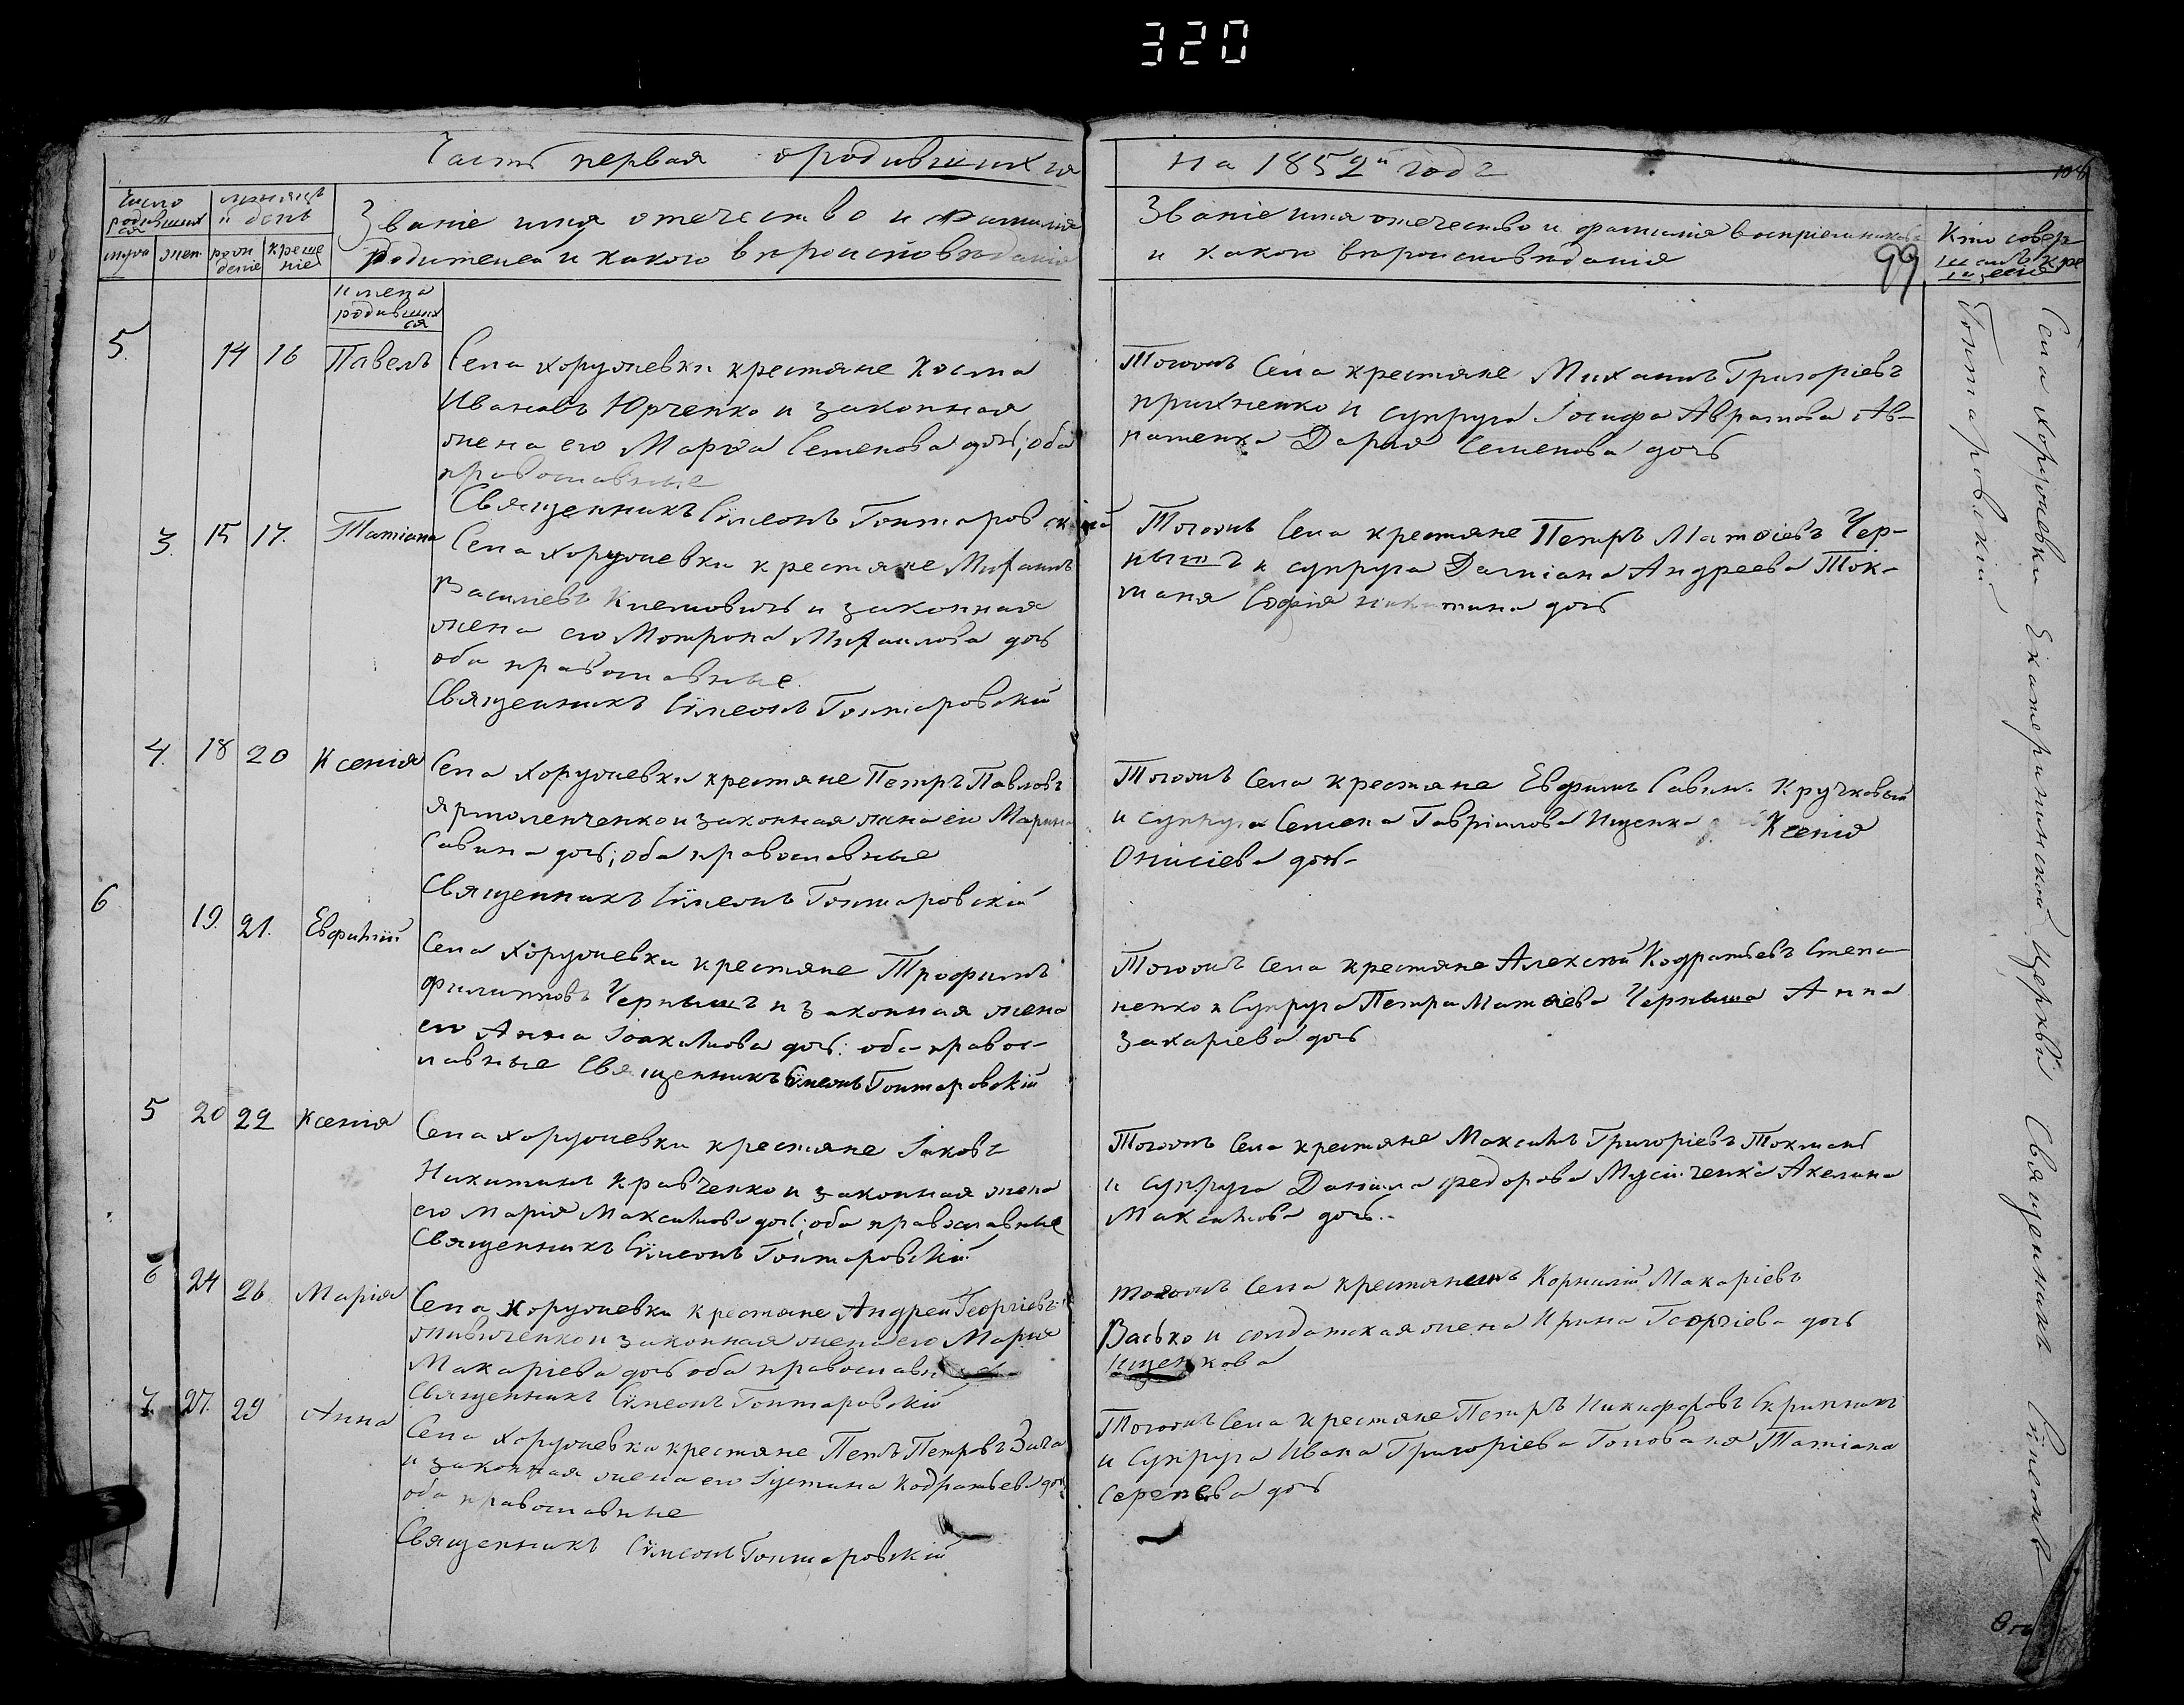 320
Часть первая о родившихся
на 1852й годъ
108
Число родившихся
мѣсяцъ и день
Званіе имя отечество и фамилія
родителей и какого вѣроисповѣданія
Званіе имя отечество и фамилія воспріемниковъ
и какого вѣроисповѣданія
99
Кто совер
шилъ кре
щеніе
муж жен рож деніе креще ніе
имена
родивших
ся
5. 14 16 Павелъ Села Хоружевки крестяне Косма
Ивановъ Юрченко и законная
жена его Марѳа Семенова дочь; оба
православные
Священникъ Сѵмеонъ Гонтаровскій
Тогожъ Села крестяне Михаилъ Григоріевъ
и супруга Іосифа Аврамова Ав-
Дарія Семенова дочь
3. 15 17. Татіана Села Хоружевки крестяне Михаилъ
Василіевъ Климовичъ и законная
жена его Мотрона Михаилова дочь
оба православные.
Священникъ Сѵмеонъ Гонтаровскій
Тогожъ Села крестяне Петръ Матѳіевъ Чер-
нышъ и супруга Даміана Андреева Ток-
маня Софія Никитина дочь
4. 18 20 Ксенія Села Хоружевки крестяне Петръ Павловъ
Ярмоленченко и законная жена его Марина
Савина дочь; оба православные
Священникъ Сѵмеонъ Гонтаровскій
Тогожъ Села крестяне Евфимъ Савин. Кручковый
и супруга Семена Гавріилова Ищенка Ксенія
Онисіева дочь-
6 19. 21. Евфимій Села Хоружевки крестяне Трофимъ
Филиповъ Чернышъ и законная жена
его Анна Іоакимова дочь: оба правос-
лавные Священникъ Сѵмеонъ Гонтаровскій
Тогожъ Села крестяне Алексѣй Кодратьевъ Степа-
ненко и Супруга Петра Матѳіева Черныша Анна
Захаріева дочь
5 20 22 Ксенія Села Хоружевки крестяне Іаковъ
Никитинъ Кравченко и законная жена
его Марія Максимова дочь; оба православные
Священникъ Сѵмеонъ Гонтаровскій
Тогожъ Села крестяне Максимъ Григоріевъ Токмань
и супруга Даніила Федорова Мусійченка Акелина
Максимова дочь.-
6 24 26 Марія Села Хоружевки крестяне Андрей Георгіевъ
и законная жена его Марія
Макаріева дочь оба православные
Священникъ Сѵмеонъ Гонтаровскій
тогожъ Села крестянинъ Корнилій Макаріевъ
Васько и солдатская жена Ирина Георгіева дочь
Ищенкова
7. 27. 29 Анна Села Хоружевки крестяне Петъ Петровъ Заїка
и законная жена его Іустина Кодратьева дочь
оба православные
Священникъ Сѵмеонъ Гонтаровскій
Тогожъ Села крестяне Петръ Никифоровъ Скрипникъ
и Супруга Ивана Григоріева Голованя Татіана
дочь
Села Хоружевки Екатерининской Церкви Священникъ Сѵмеонъ
Гонтаровскій